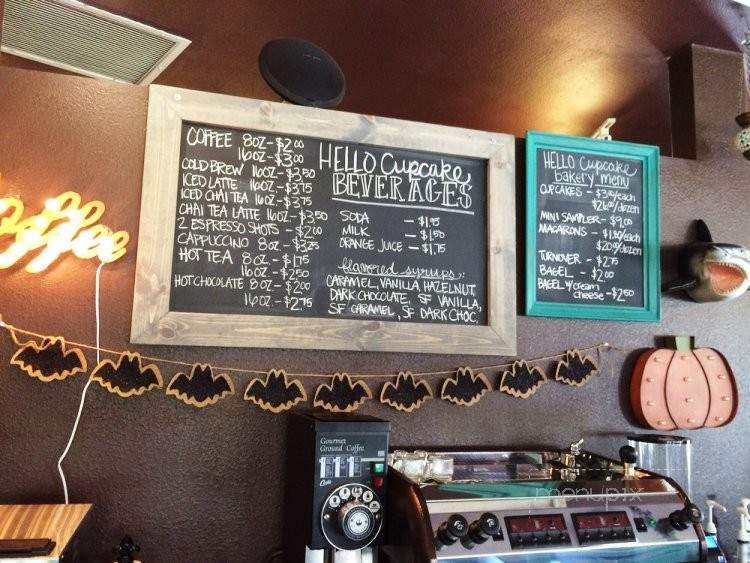 COFFEE 8OZ - $2.00
16OZ - $3.00
COLD BREW 16OZ - $3.50
ICED LATTE 16OZ - $3.75
ICED CHAI TEA 16OZ - $3.75
CHAI TEA LATTE 16OZ - $3.50
2 ESPRESSO SHOTS - $2.00
CAPPUCCINO 8OZ - $3.25
HOT TEA 8OZ - $1.75
16OZ - $2.50
HOT CHOCOLATE 8OZ - $2.00
16OZ - $2.75
HELLO Cupcake
BEVERAGES
SODA - $1.95
MILK - $1.50
ORANGE JUICE - $1.75
flavored syrups:
CARAMEL, VANILLA, HAZELNUT,
DARK CHOCOLATE, SF VANILLA,
SF CARAMEL, SF DARK CHOC.
HELLO Cupcake
bakery menu
CUPCAKES - /each
/dozen
MINI SAMPLER - $9.00
MACARONS - /each
/dozen
TURNOVER - $2.75
BAGEL - $2.00
BAGEL W/cream
cheese - $2.50
coffee
Gourmet
Ground Coffee
menupix